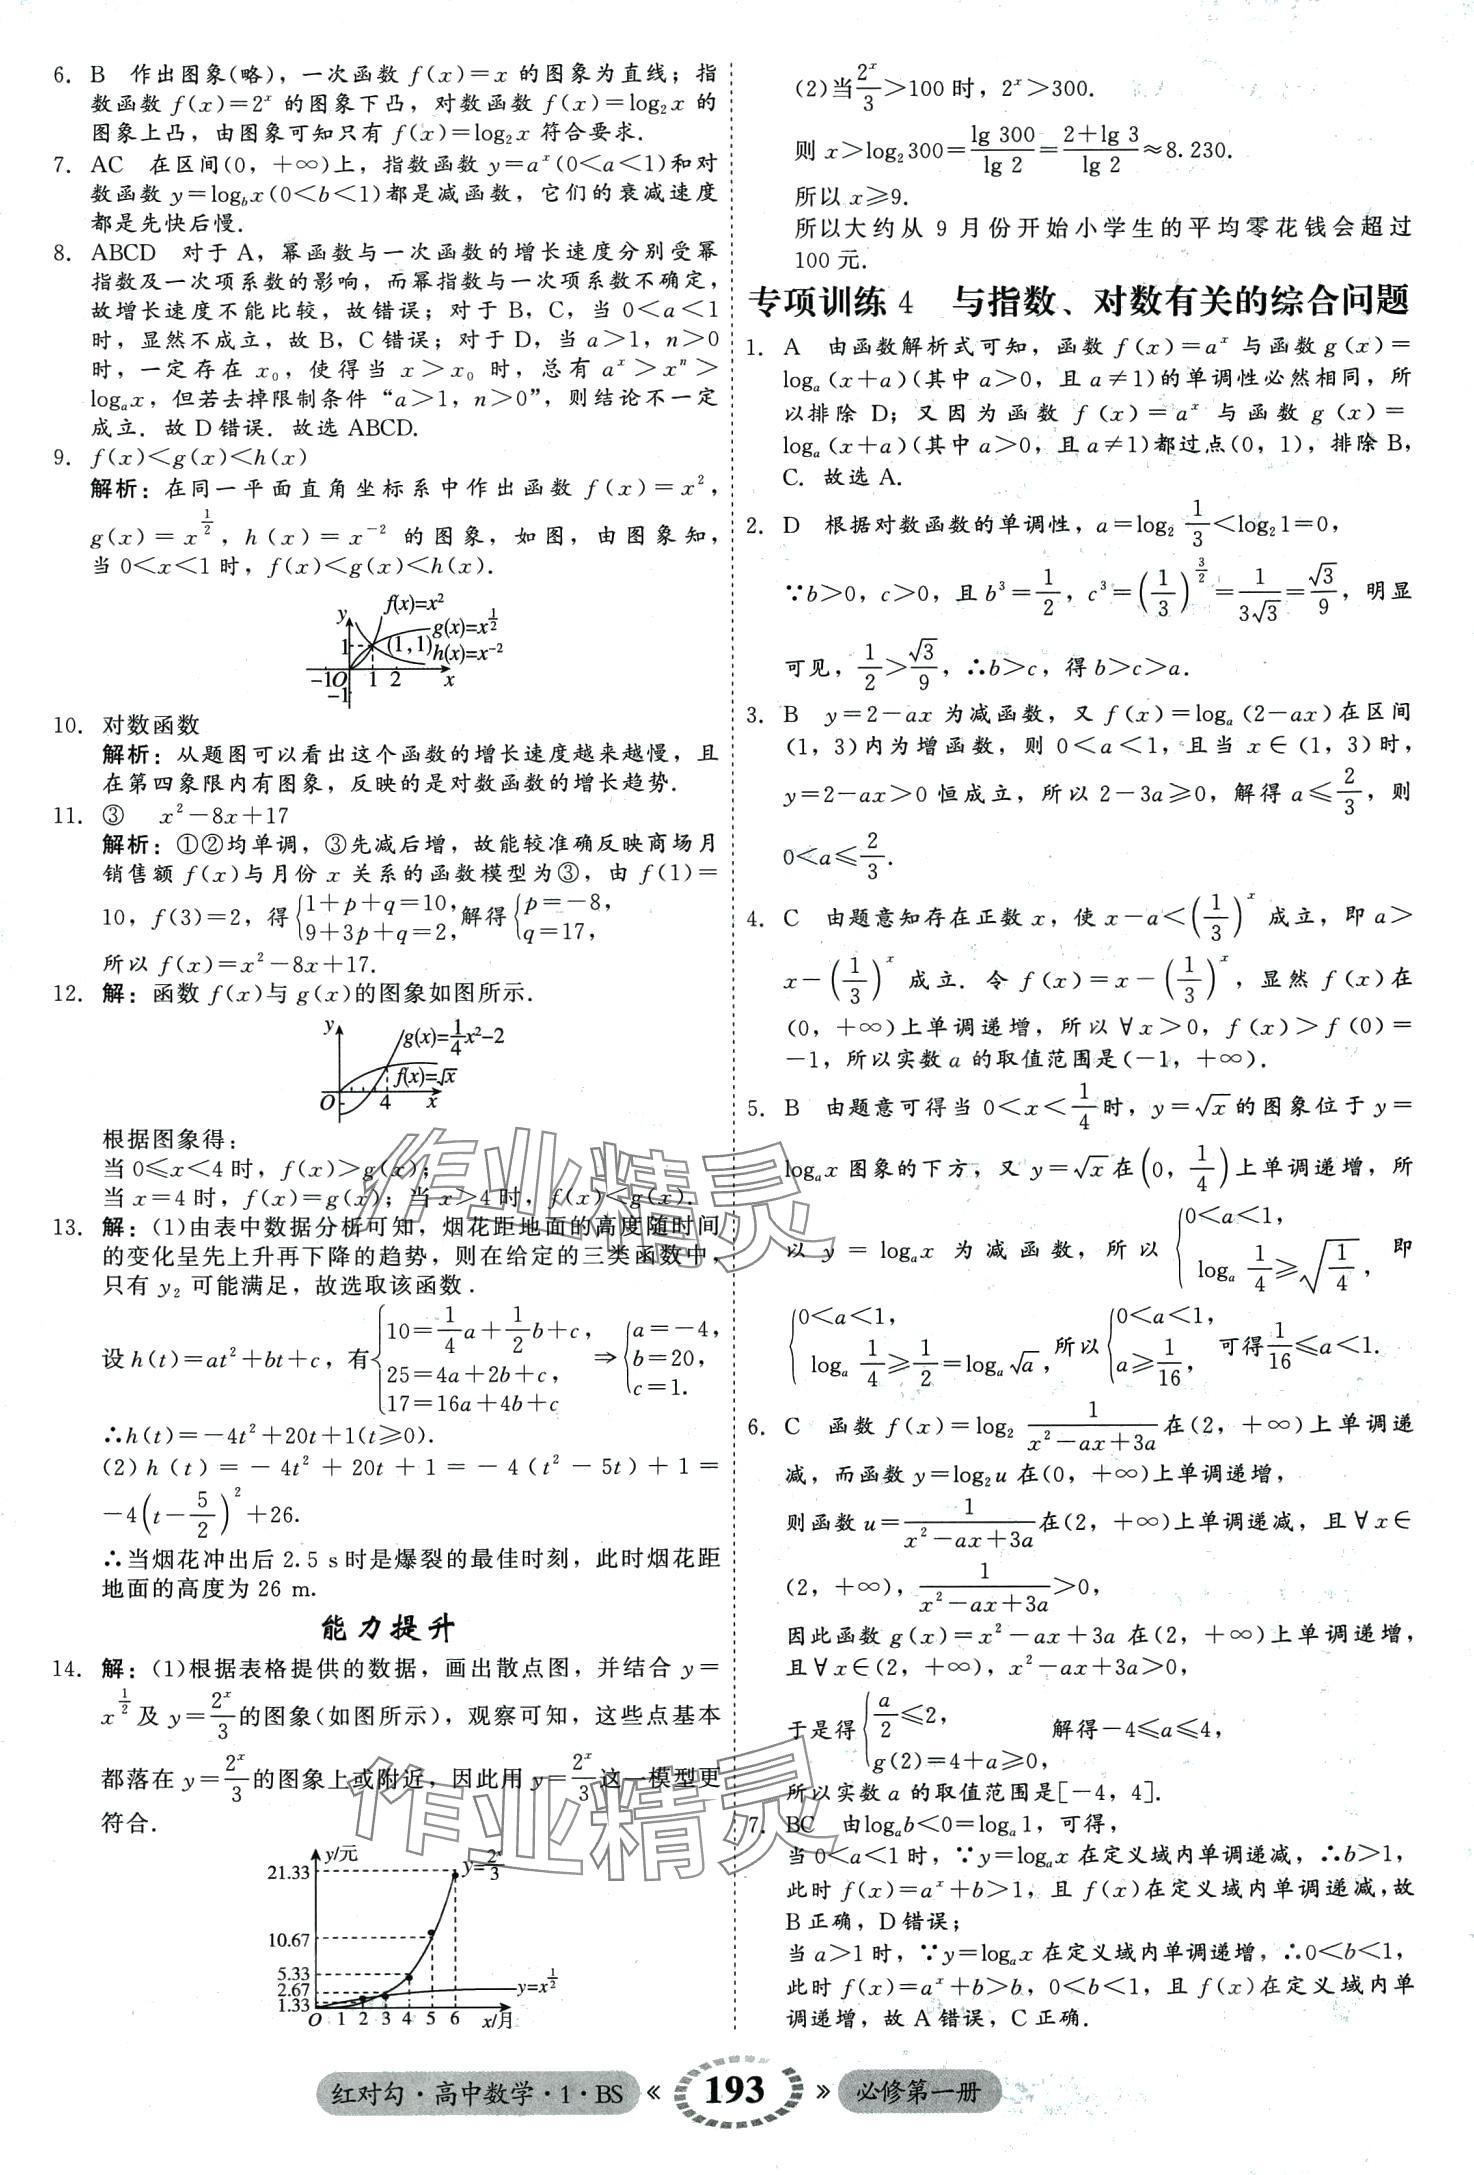 6. B 作出图象(略)，一次函数 f(x)=x 的图象为直线；指
数函数 f(x)=2^x 的图象下凸，对数函数 f(x)=log₂x 的
图象上凸，由图象可知只有 f(x)=log₂x 符合要求.
7. AC 在区间(0，+∞)上，指数函数 y=a^x(0<a<1)和对
数函数 y=log_b x(0<b<1)都是减函数，它们的衰减速度
都是先快后慢.
8. ABCD 对于 A，幂函数与一次函数的增长速度分别受幂
指数及一次项系数的影响，而幂指数与一次项系数不确定，
故增长速度不能比较，故错误；对于 B，C，当 0<a<1
时，显然不成立，故 B，C 错误；对于 D，当 a>1，n>0
时，一定存在 x₀，使得当 x>x₀ 时，总有 a^x>x^n>
log_a x，但若去掉限制条件“a>1，n>0”，则结论不一定
成立. 故 D 错误. 故选 ABCD.
9. f(x)<g(x)<h(x)
解析：在同一平面直角坐标系中作出函数 f(x)=x²，
g(x)=x^{1/2}，h(x)=x^{-2} 的图象，如图，由图象知，
当 0<x<1 时，f(x)<g(x)<h(x).
y f(x)=x²
g(x)=x^{1/2}
1 (1,1) h(x)=x^{-2}
-1 O 1 2 x
-1
10. 对数函数
解析：从题图可以看出这个函数的增长速度越来越慢，且
在第四象限内有图象，反映的是对数函数的增长趋势.
11. ③ x²-8x+17
解析：①②均单调，③先减后增，故能较准确反映商场月
销售额 f(x)与月份 x 关系的函数模型为③，由 f(1)=
10，f(3)=2，得{1+p+q=10, 9+3p+q=2, 解得{p=-8, q=17,
所以 f(x)=x²-8x+17.
12. 解：函数 f(x)与 g(x)的图象如图所示.
y g(x)=1/4x²-2
f(x)=√x
O 4 x
根据图象得：
当 0≤x<4 时，f(x)>g(x)；
当 x=4 时，f(x)=g(x)；当 x>4 时，f(x)<g(x).
13. 解：(1)由表中数据分析可知，烟花距地面的高度随时间
的变化呈先上升再下降的趋势，则在给定的三类函数中，
只有 y₂ 可能满足，故选取该函数.
设 h(t)=at²+bt+c，有{10=1/4a+1/2b+c, 25=4a+2b+c, 17=16a+4b+c ⇒{a=-4, b=20, c=1.
∴h(t)=-4t²+20t+1(t≥0).
(2)h(t)=-4t²+20t+1=-4(t²-5t)+1=
-4(t-5/2)²+26.
∴当烟花冲出后 2.5 s 时是爆裂的最佳时刻，此时烟花距
地面的高度为 26 m.
能力提升
14. 解：(1)根据表格提供的数据，画出散点图，并结合 y=
x^{1/2} 及 y=2^x/3 的图象(如图所示)，观察可知，这些点基本
都落在 y=2^x/3 的图象上或附近，因此用 y=2^x/3 这一模型更
符合.
y/元
21.33 y=2^x/3
10.67
5.33
2.67 y=x^{1/2}
1.33
O 1 2 3 4 5 6 x/月
(2)当 2^x/3>100 时，2^x>300.
则 x>log₂300=lg 300/lg 2=(2+lg 3)/lg 2≈8.230.
所以 x≥9.
所以大约从 9 月份开始小学生的平均零花钱会超过
100 元.
专项训练 4 与指数、对数有关的综合问题
1. A 由函数解析式可知，函数 f(x)=a^x 与函数 g(x)=
log_a(x+a)(其中 a>0，且 a≠1)的单调性必然相同，所
以排除 D；又因为函数 f(x)=a^x 与函数 g(x)=
log_a(x+a)(其中 a>0，且 a≠1)都过点(0，1)，排除 B，
C. 故选 A.
2. D 根据对数函数的单调性，a=log₂ 1/3<log₂1=0，
∵b>0，c>0，且 b³=1/2，c³=(1/3)^{3/2}=1/(3√3)=√3/9，明显
可见，1/2>√3/9，∴b>c，得 b>c>a.
3. B y=2-ax 为减函数，又 f(x)=log_a(2-ax)在区间
(1，3)内为增函数，则 0<a<1，且当 x∈(1，3)时，
y=2-ax>0 恒成立，所以 2-3a≥0，解得 a≤2/3，则
0<a≤2/3.
4. C 由题意知存在正数 x，使 x-a<(1/3)^x 成立，即 a>
x-(1/3)^x 成立. 令 f(x)=x-(1/3)^x，显然 f(x)在
(0，+∞)上单调递增，所以 ∀x>0，f(x)>f(0)=
-1，所以实数 a 的取值范围是(-1，+∞).
5. B 由题意可得当 0<x<1/4 时，y=√x 的图象位于 y=
log_a x 图象的下方，又 y=√x 在(0，1/4)上单调递增，所
以 y=log_a x 为减函数，所以{0<a<1, log_a 1/4≥√(1/4), 即
{0<a<1, log_a 1/4≥1/2=log_a √a, 所以{0<a<1, a≥1/16, 可得 1/16≤a<1.
6. C 函数 f(x)=log₂ 1/(x²-ax+3a) 在(2，+∞)上单调递
减，而函数 y=log₂u 在(0，+∞)上单调递增，
则函数 u=1/(x²-ax+3a) 在(2，+∞)上单调递减，且 ∀x∈
(2，+∞)，1/(x²-ax+3a)>0，
因此函数 g(x)=x²-ax+3a 在(2，+∞)上单调递增，
且 ∀x∈(2，+∞)，x²-ax+3a>0，
于是得{a/2≤2, g(2)=4+a≥0, 解得-4≤a≤4，
所以实数 a 的取值范围是[-4，4].
7. BC 由 log_a b<0=log_a 1，可得，
当 0<a<1 时，∵y=log_a x 在定义域内单调递减，∴b>1，
此时 f(x)=a^x+b>1，且 f(x)在定义域内单调递减，故
B 正确，D 错误；
当 a>1 时，∵y=log_a x 在定义域内单调递增，∴0<b<1，
此时 f(x)=a^x+b>b，0<b<1，且 f(x)在定义域内单调
递增，故 A 错误，C 正确.
作业精灵
作业精灵
红对勾·高中数学·1·BS « 193 » 必修第一册